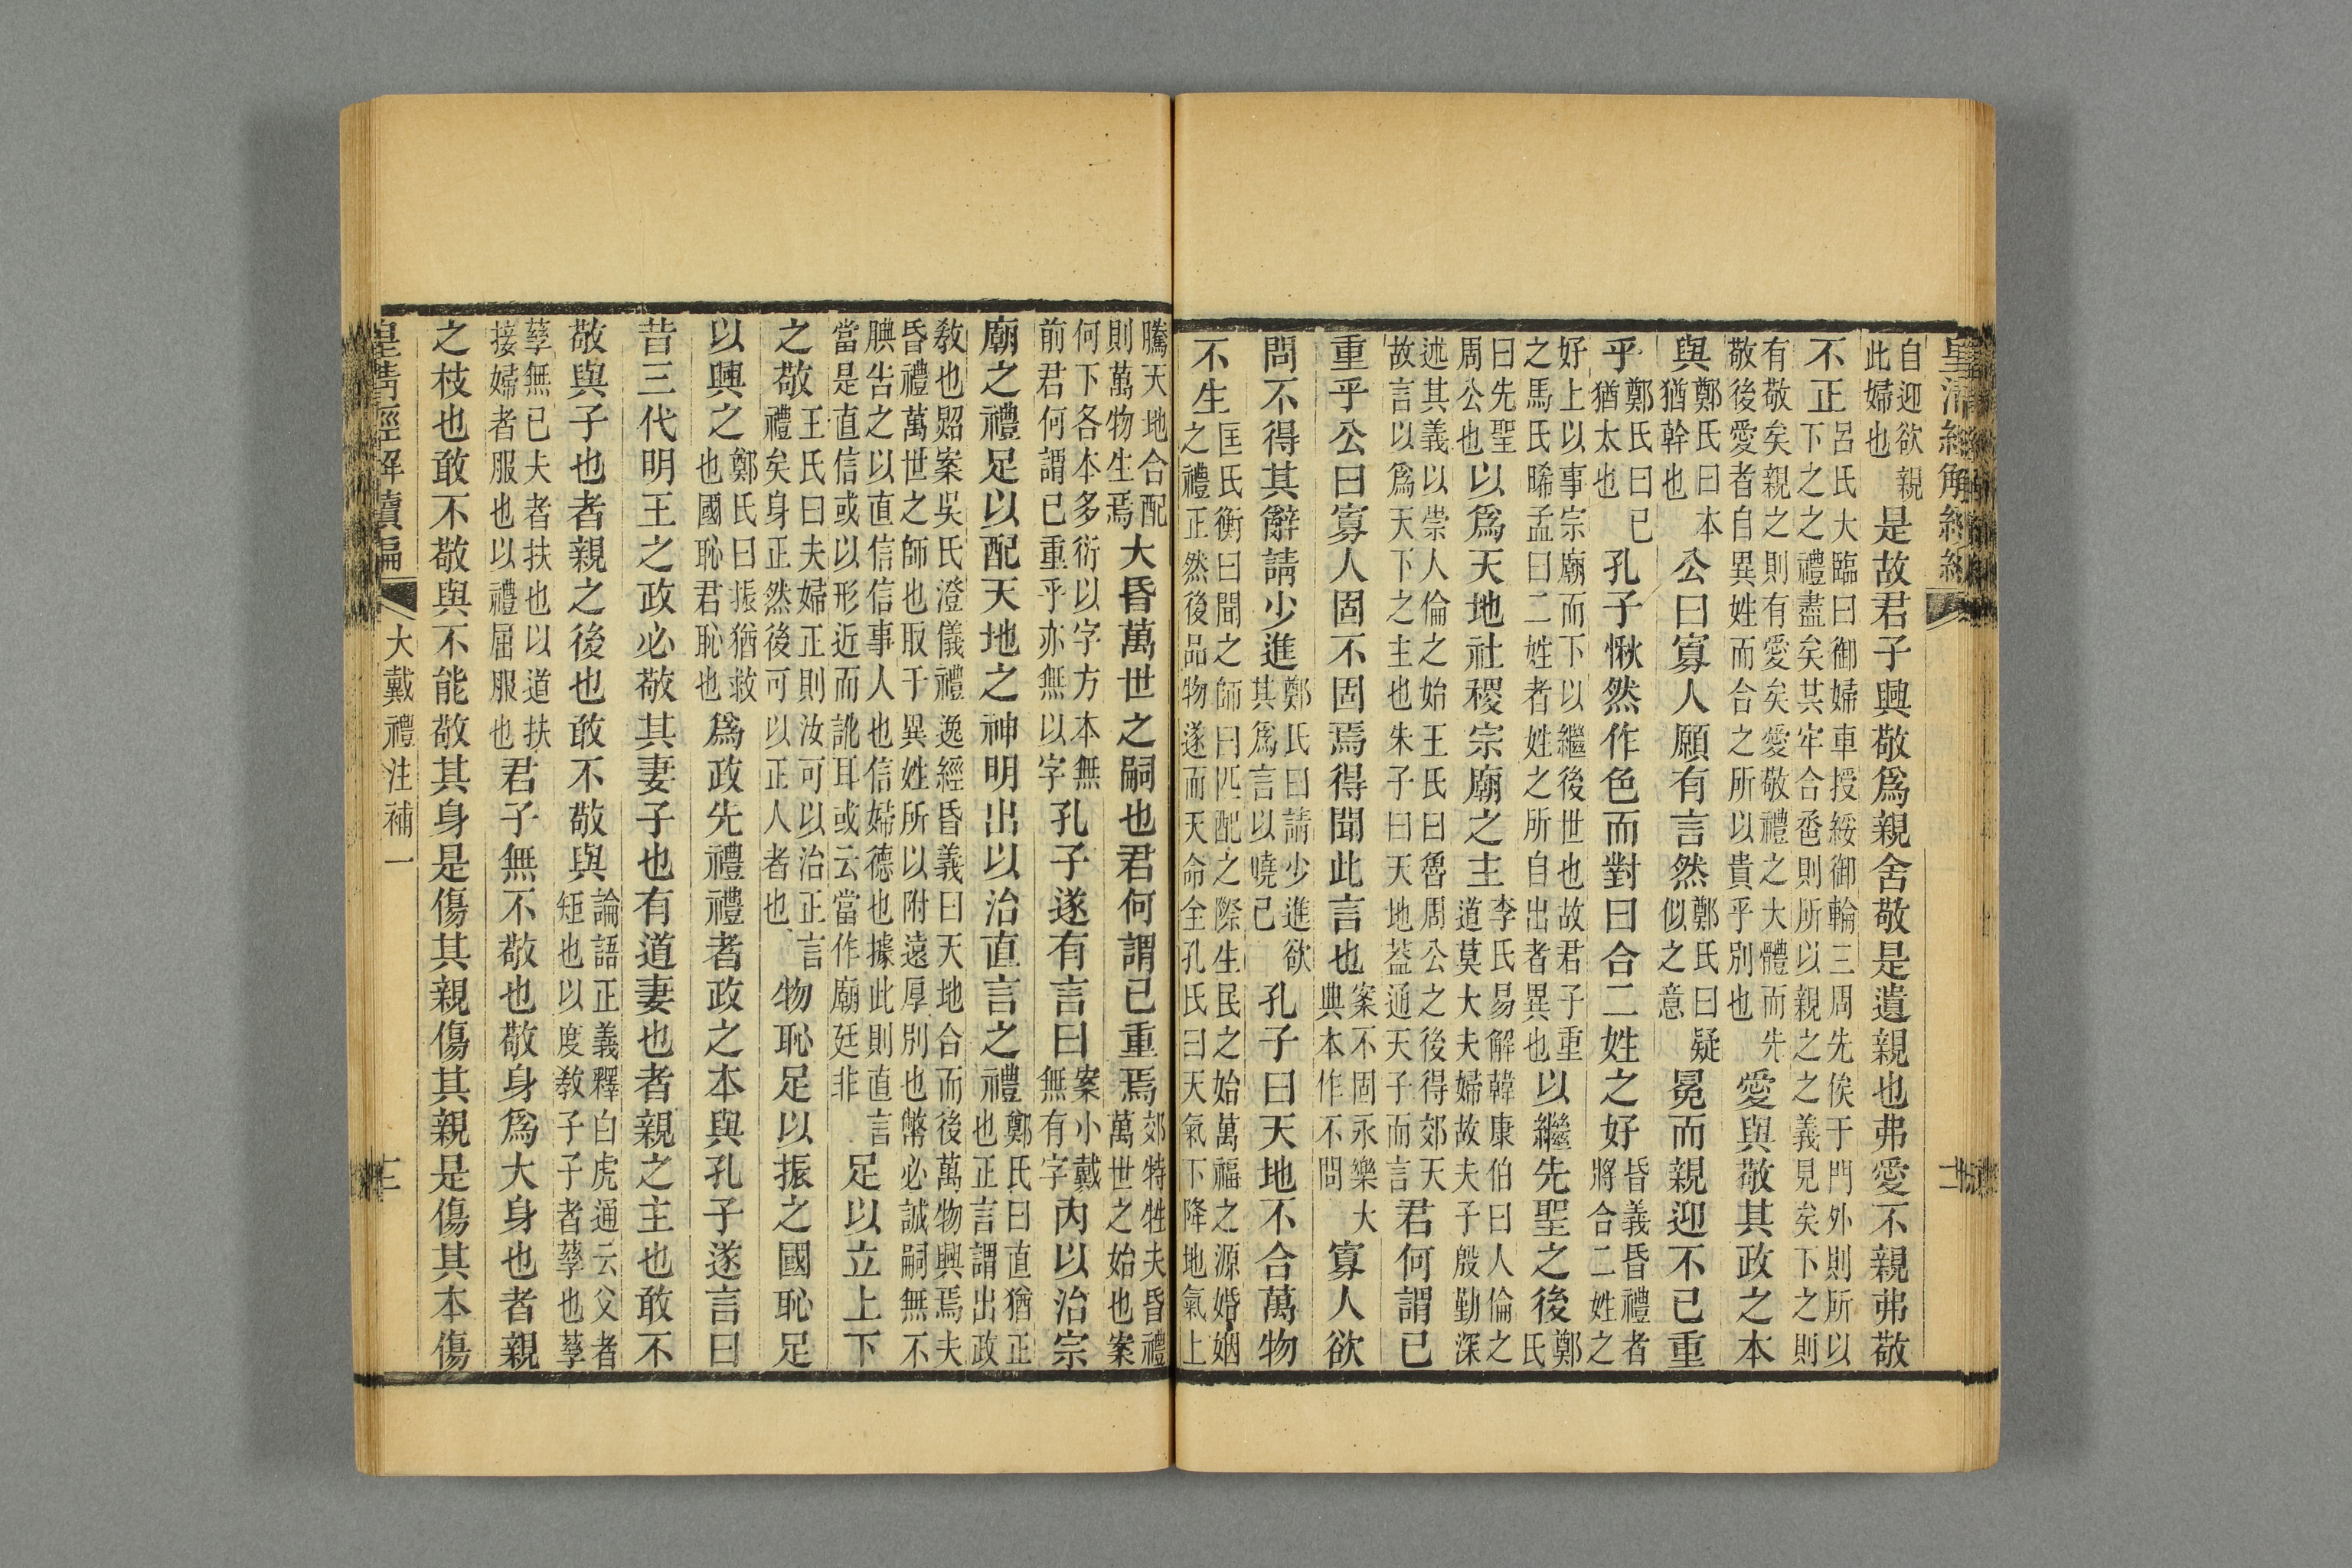 自迎欲親此婦也是故君子興敬爲親舍敬是遺親也弗愛不親弗敬
不正呂氏大臨曰御婦車授綏御輪三周先俟于門外則所以下之之禮盡矣其牢合卺則所以親之之義見矣下之則
有敬矣親之則有愛矣愛敬禮之大體而先敬後愛者自異姓而合之所以貴乎別也愛與敬其政之本
與鄭氏曰本猶幹也公曰寡人願有言然鄭氏曰疑似之意冕而親迎不已重
乎鄭氏曰已猶太也孔子愀然作色而對曰合二姓之好皆義昏禮者將合二姓之
好上以事宗廟而下以繼後世也故君子重之馬氏晞孟曰二姓者姓之所自出者異也以繼先聖之後鄭氏
曰先聖周公也以爲天地社稷宗廟之主李氏易解韓康伯曰人倫之道莫大夫婦故夫子殷勤深
述其義以崇人倫之始王氏曰魯周公之後得郊天故言以爲天下之主也朱子曰天地葢通天子而言君何謂已
重乎公曰寡人固不固焉得聞此言也案不固永樂大典本作不問寡人欲
問不得其辭請少進鄭氏曰請少進欲其爲言以曉己孔子曰天地不合萬物
不生匡氏衡曰聞之師曰匹配之際生民之始萬福之源婚姻之禮正然後品物遂而天命全孔氏曰天氣下降地氣上
騰天地合配則萬物生焉大昏萬世之嗣也君何謂已重焉郊特牲夫昏禮萬世之始也案
何下各本多衍以字方本無前君何謂已重乎亦無以字孔子遂有言曰案小戴無有字內以治宗
廟之禮足以配天地之神明出以治直言之禮鄭氏曰直猶正也正言謂出政
教也照案吳氏澄儀禮逸經昏義曰天地合而後萬物興焉夫昏禮萬世之師也取于異姓所以附遠厚別也幣必誠嗣無不
腆告之以直信信事人也信婦德也據此則直言當是直信或以形近而訛耳或云當作廟廷非足以立上下
之敬王氏曰夫婦正則汝可以治正言禮矣身正然後可以正人者也物恥足以振之國恥足
以興之鄭氏曰振猶救也國恥君恥也爲政先禮禮者政之本與孔子遂言曰
昔三代明王之政必敬其妻子也有道妻也者親之主也敢不
敬與子也者親之後也敢不敬與論語正義釋白虎通云父者矩也以度教子子者孳也孳
孳無已夫者扶也以道扶接婦者服也以禮屈服也君子無不敬也敬身爲大身也者親
之枝也敢不敬與不能敬其身是傷其親傷其親是傷其本傷
皇清經解續編 大戴禮注補一 三